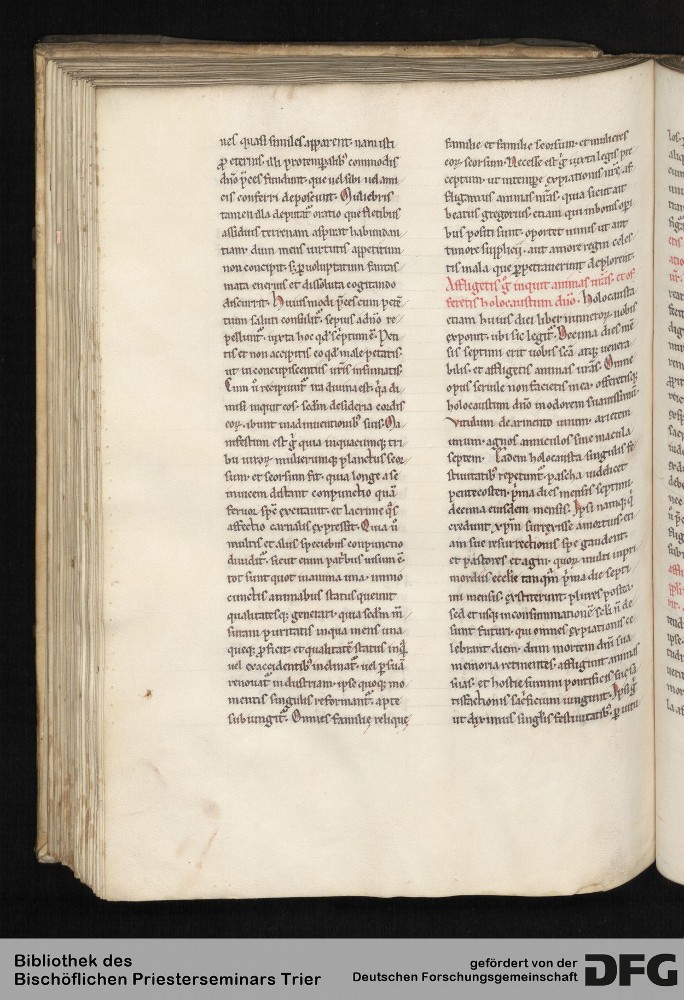 uel quasi similes apparent. nam isti
ꝓ eternis. illi pro temporalibꝰ commodis
dn̄o p̄ces fundunt. que uel sibi uel ami
cis conferri deposcunt. Muliebris
tamen illa deputat᷑ oratio que fletibus
assiduis terrenam aspirat habundan
tiam. dum mens uirtutis appetitum
non concipit. sꝫ ꝑ uoluptatum fantas
mata currens et dissoluta cogitando
discurrit. Huiusmodi p̄ces cum
tum saluti consulit᷑. sepius a dn̄o re
pelluntur. iuxta hoc qd̄ sc̄ptum ē. Peti
tis et non accipitis eo qd̄ male petatis.
ut in concupiscentiis ur̄is insumatis.
Cum ū recipiunt᷑ ira diuina est.
misi inquit eos. scd̄m desideria cordis
eoꝝ. ibunt in adinuentionibꝰ suis. Ma
nifestum est g̊ quia in quacumqꝫ tri
bu uiroꝝ mulierumqꝫ planctus seor
sum et seorsum fit. quia longe a se
inuicem distant conpunctio quā
feruor spē excitauit. et lacrime qͣs
affectio carnalis expressit. Quia ū
multis et aliis speciebus conpunctio
diuidit᷑. sicut enim patribꝰ uisum ē.
tot sunt quot in anima una. immo
cunctis animabus status queunt
qualitatesqꝫ generari. quia scd̄m m̄
suram puritatis in qua mens una
queqꝫ ꝓficit. et qualitatē status in qͣ
uel ex accidentibꝰ inclinat᷑. uel ꝑ suā
renouat᷑ industriam. ipse quoqꝫ mo
mentis singulis reformant᷑. apte
subiungit᷑. Omnes familie relique
familie et familie seorsum. et mulieres
eoꝝ seorsum. Necesse est g̊ iuxta legis pre
ceptum. ut in tempe expiationis nr̄e. af
fligamus animas nr̄as. quia sicut ait
beatus gregorius. etiam qui in bonis opi
bus positi sunt. oportet nimis ut aut
timore supplicii. aut amore regni celes
tis mala que ꝑpetrauerunt deplorent.
Affligetis g̊ inquit animas ur̄as. et of
feretis holocaustum dn̄o. Holocausta
etiam huius diei liber numeroꝝ nobis
exponit. ubi sic legit᷑. Decima dies mē
sis septimi erit uobis scā atqꝫ uenera
bilis. et affligetis animas ur̄as. Omne
opus seruile non facietis in ea. offeretisqꝫ
holocaustum dn̄o in odorem suauissimū.
Vitulum de armento unum. arietem
unum. agnos anniculos sine macula
septem. Eadem holocausta singulis fe
stiuitatibꝰ repetunt᷑. pascha uidelicet
pentecosten. p̄ma dies mensis septimi.
decima eiusdem mensis. Ipsi namqꝫ qͥ
credunt xp̄m surrexisse a mortuis. eti
am sue resurrectionis spe gaudent.
et pastores et agni. quoꝝ multi in pri
mordiis ecclīe tamqͣm p̄ma die septi
mi mensis. extiterunt. plures postea.
sed et usqꝫ in consummationē sc̄li n̄ de
sunt futuri. qui omnes expiationis ce
lebrant diem. dum mortem dn̄i sua
memoria retinentes. affligunt animas
suas. et hostie summi pontificis sue sā
tificationis sac̄ficium iungunt. Ipsa g̊
ut diximus singl̓is festiuitatibꝰ.
Bibliothek des
Bischöflichen Priesterseminars Trier
gefördert von der
Deutschen Forschungsgemeinschaft
DFG